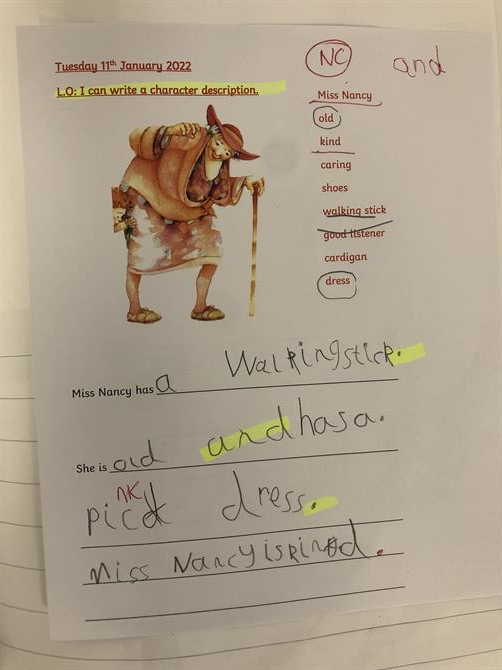 Tuesday 11th January 2022
NC and
L.O: I can write a character description.
Miss Nancy
old
kind
caring
shoes
walking stick
good listener
cardigan
dress
Miss Nancy has a Walkingstick.
She is old and hasa.
nk
picd dress.
Miss Nancyiskinod.